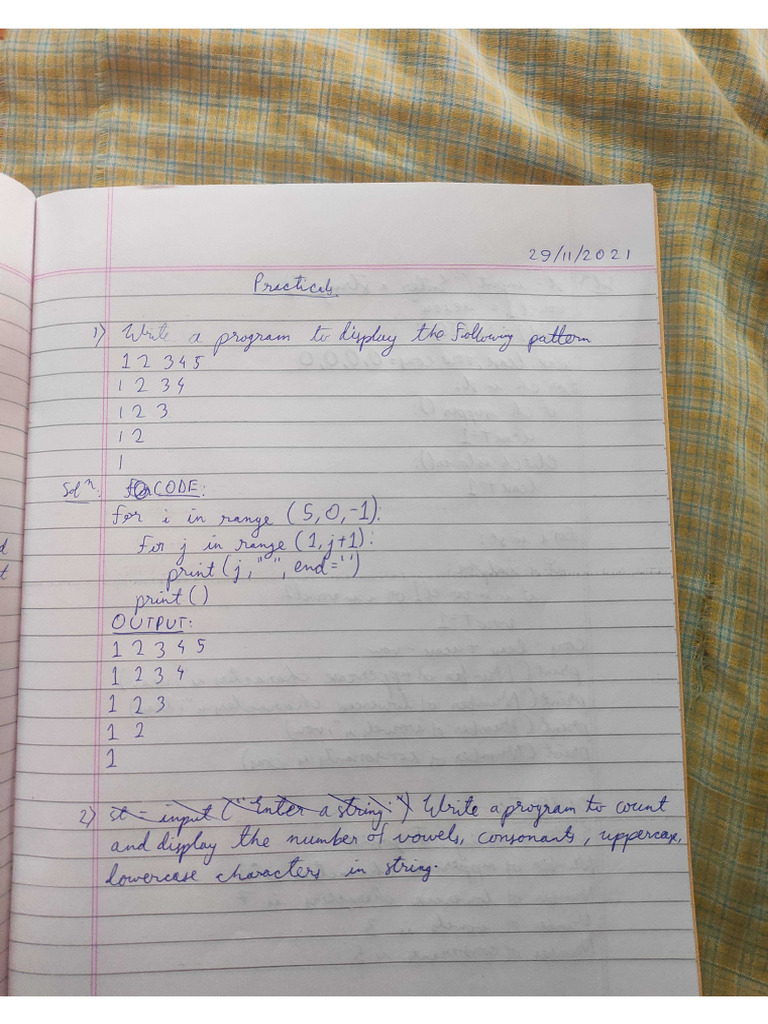 29/11/2021
Practicals
1) Write a program to display the following pattern
1 2 3 4 5
1 2 3 4
1 2 3
1 2
1
Solⁿ: CODE:
for i in range (5,0,-1):
for j in range (1,j+1):
print(j," ", end='')
print()
OUTPUT:
1 2 3 4 5
1 2 3 4
1 2 3
1 2
1
2) st = input ("Enter a string:") Write a program to count
and display the number of vowels, consonants, uppercase,
lowercase characters in string.